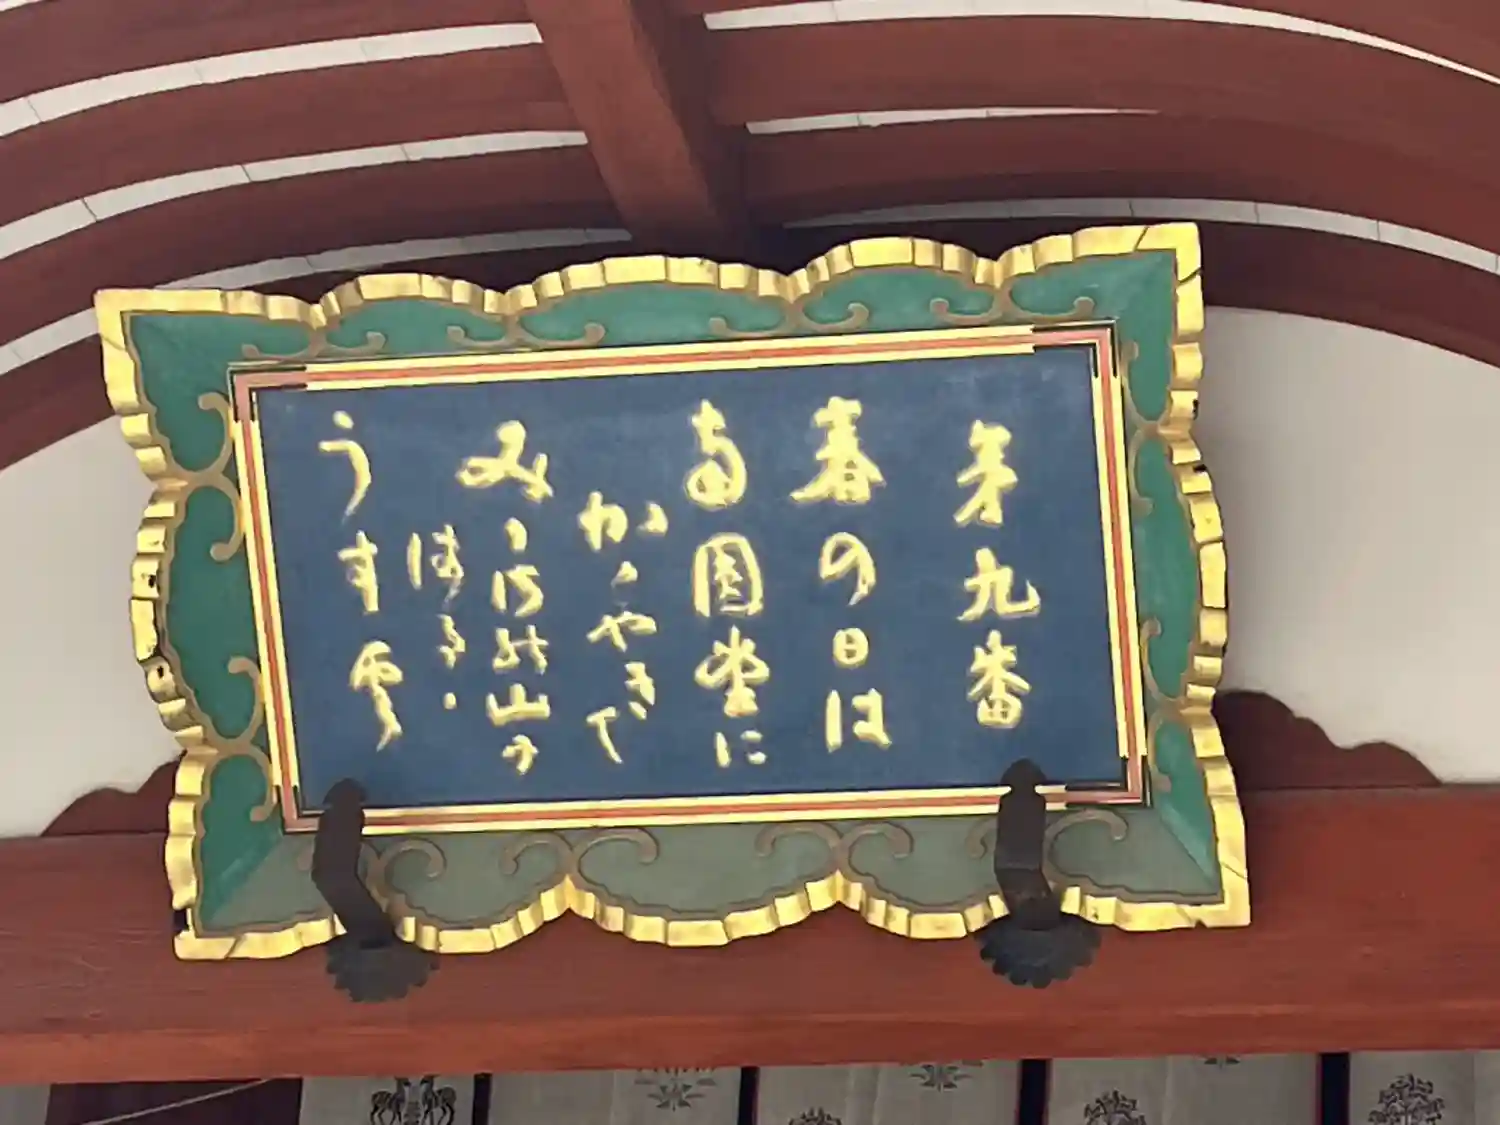 第九番
春の日は
南圓堂に
かゝやきて
み可さ能山尓
はるゝ
うす雲